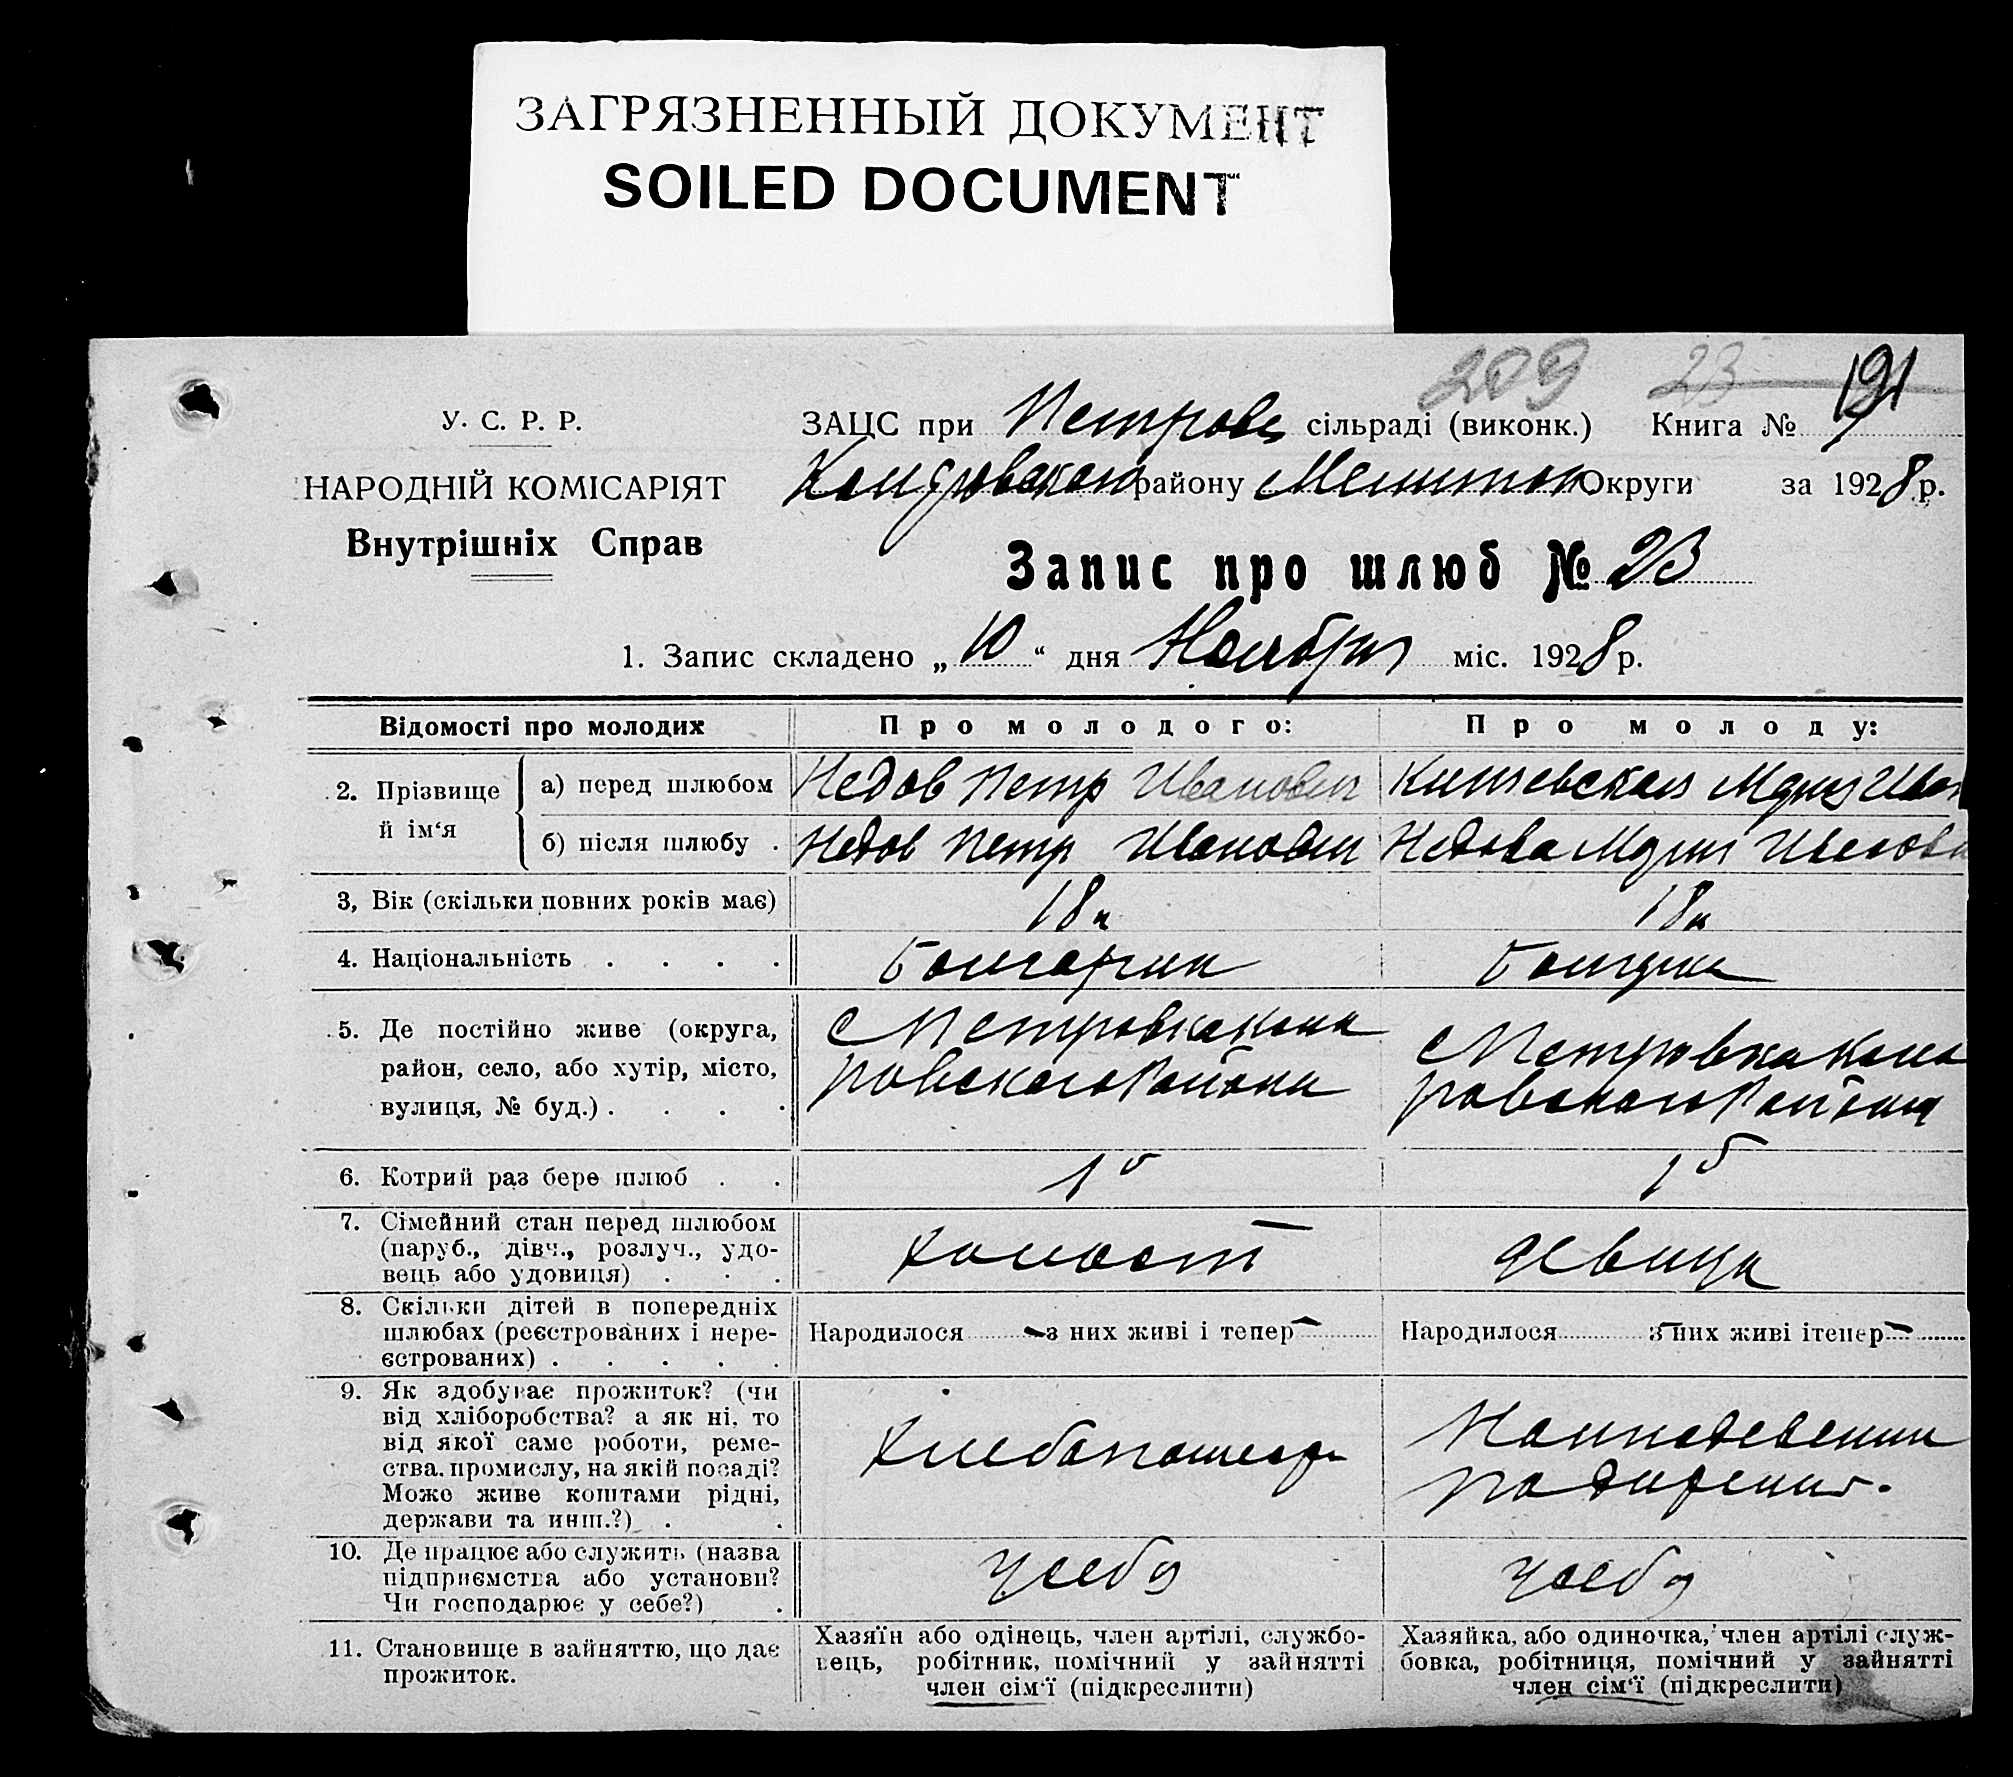 ЗАГРЯЗНЕННЫЙ ДОКУМЕНТ
SOILED DOCUMENT
209 23 191
У. С. Р. Р.
ЗАЦС при Петровс сільраді (виконк.) Книга №
НАРОДНІЙ КОМІСАРІЯТ
району Округи за 1928 р.
Внутрішніх Справ
Запис про шлюб № 23
1. Запис складено „10“ дня Ноября міс. 1928 р.
Відомості про молодих
Про молодого:
Про молоду:
2. Прізвище й ім‘я
а) перед шлюбом
Недов Петр Иванович
Мария Иван
б) після шлюбу .
Недов Петр Иванович
Недова Мария
3, Вік (скільки повних років має)
18
18
4. Національність . . . .
Болгарин
5. Де постійно живе (округа,
район, село, або хутір, місто,
вулиця, № буд.) . . . .
с Петровка
ровского Района
с Петровка
ровского Района
6. Котрий раз бере шлюб . .
1
1
7. Сімейний стан перед шлюбом
(паруб., дівч., розлуч., удо-
вець або удовиця) . . .
холост
девица
8. Скільки дітей в попередніх
шлюбах (реєстрованих і нере-
єстрованих) . . . . .
Народилося - з них живі і тепер -
Народилося з них живі і тепер -
9. Як здобуває прожиток? (чи
від хліборобства? а як ні, то
від якої саме роботи, реме-
ства, промислу, на якій посаді?
Може живе коштами рідні,
держави та инш.?) . .
10. Де працює або служить (назва
підприємства або установи?
Чи господарює у себе?) .
у себя
у себя
11. Становище в зайняттю, що дає
прожиток.
Хазяїн або одінець, член артілі, службо-
вець, робітник, помічний у зайнятті
член сім‘ї (підкреслити)
Хазяйка, або одиночка, член артілі служ-
бовка, робітниця, помічний у зайнятті
член сім‘ї (підкреслити)